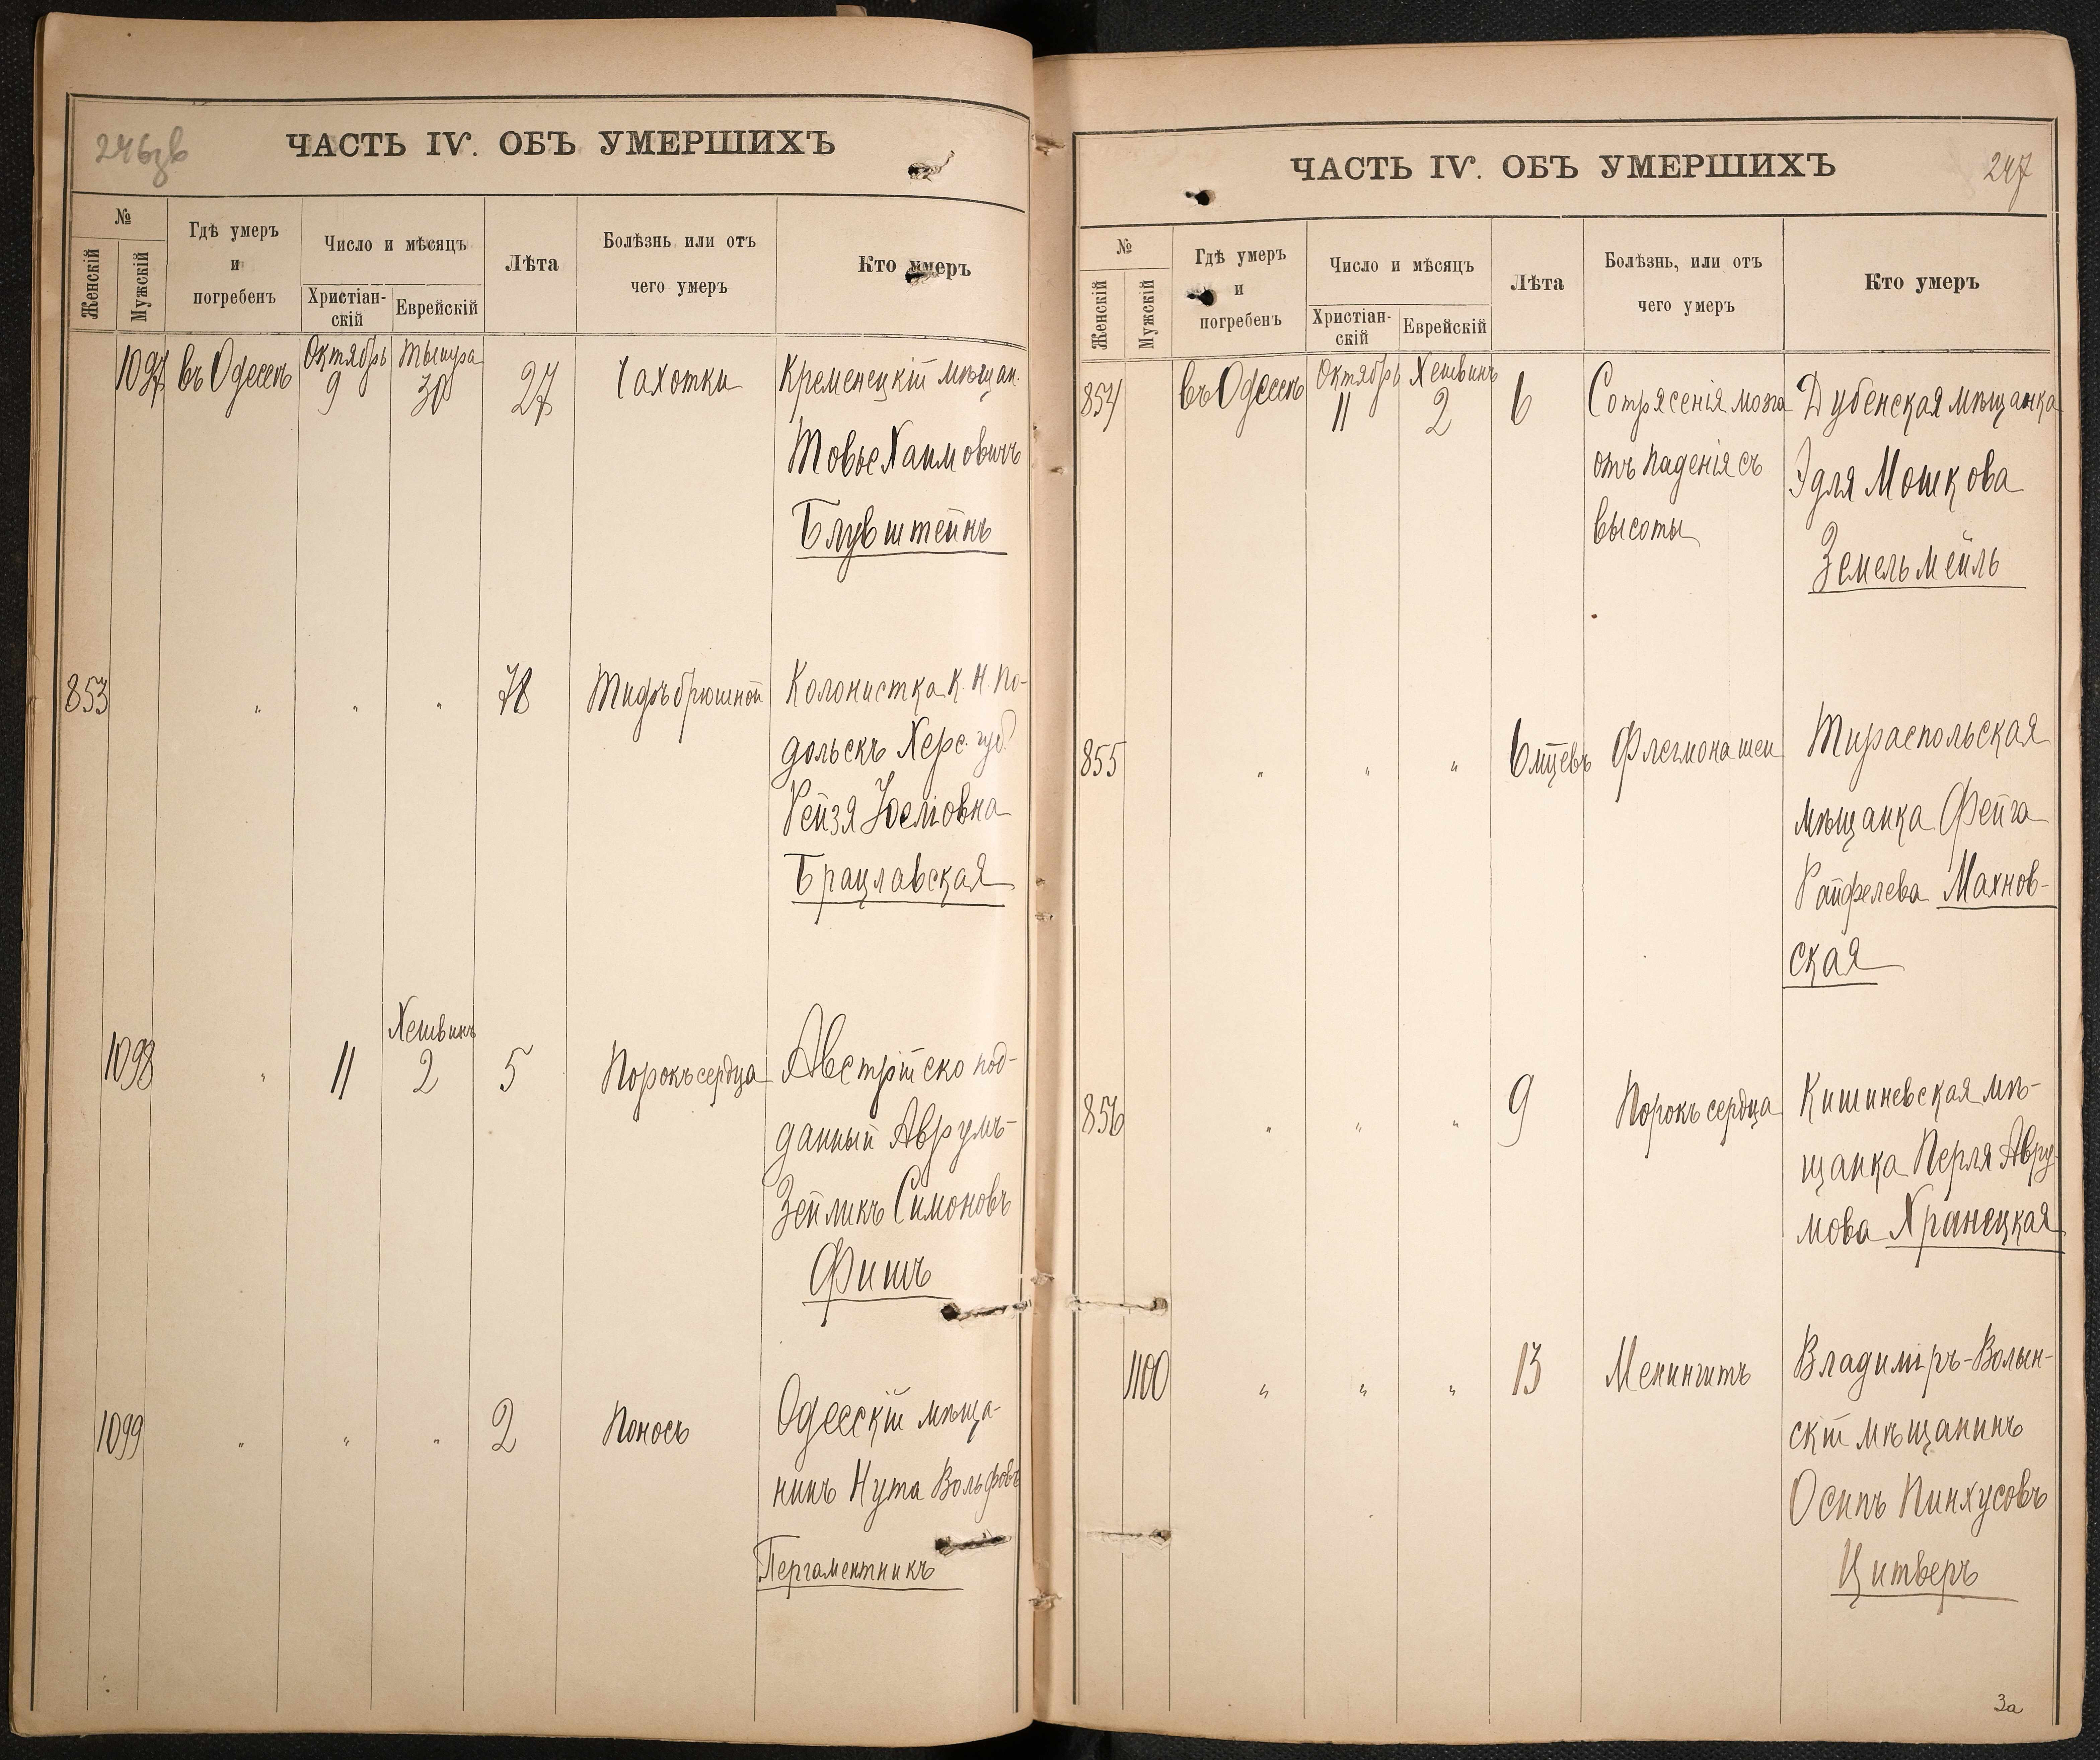 246зв
ЧАСТЬ IV. ОБЪ УМЕРШИХЪ
№
Женскій
Мужскій
Гдѣ умеръ
и
погребенъ
Число и мѣсяцъ
Христіан-
скій
Еврейскій
Лѣта
Болѣзнь или отъ
чего умеръ
Кто умеръ
1097 въ Одессѣ Октябрь 9 Тышра 30 27 Чахотки Кременецкій мѣщан.
Товье Хаимовичъ
Блувштейнъ
853 " " " 78 Тифъ брюшной Колонистка К. Н. По-
дольскъ Херс. губ.
Рейзя Іосіовна
Брацлавская
1098 " 11 Хешвинъ 2 5 Порокъ сердца Австрійско под-
данный Аврумъ-
Зейликъ Симоновъ
Фишъ
1099 " " " 2 Поносъ Одесскій мѣща-
нинъ Нута Вольфовъ
Пергаментникъ
ЧАСТЬ IV. ОБЪ УМЕРШИХЪ
247
№
Женскій
Мужскій
Гдѣ умеръ
и
погребенъ
Число и мѣсяцъ
Христіан-
скій
Еврейскій
Лѣта
Болѣзнь, или отъ
чего умеръ
Кто умеръ
854 въ Одессѣ Октябрь 11 Хешвинъ 2 6 Сотрясенія мозга Дубенская мѣщанка
отъ паденія съ Эдля Мошкова
высоты Земельмейль
855 " " " 6 мцевъ Флегмона шеи Тираспольская
мѣщанка Фейга
Райфелева Махнов-
ская
856 " " " 9 Порокъ сердца Кишиневская мѣ-
щанка Перля Авру-
мова Хранецкая
1100 " " " 13 Менингитъ Владиміръ-Волын-
скій мѣщанинъ
Осипъ Пинхусовъ
Цитверъ
За